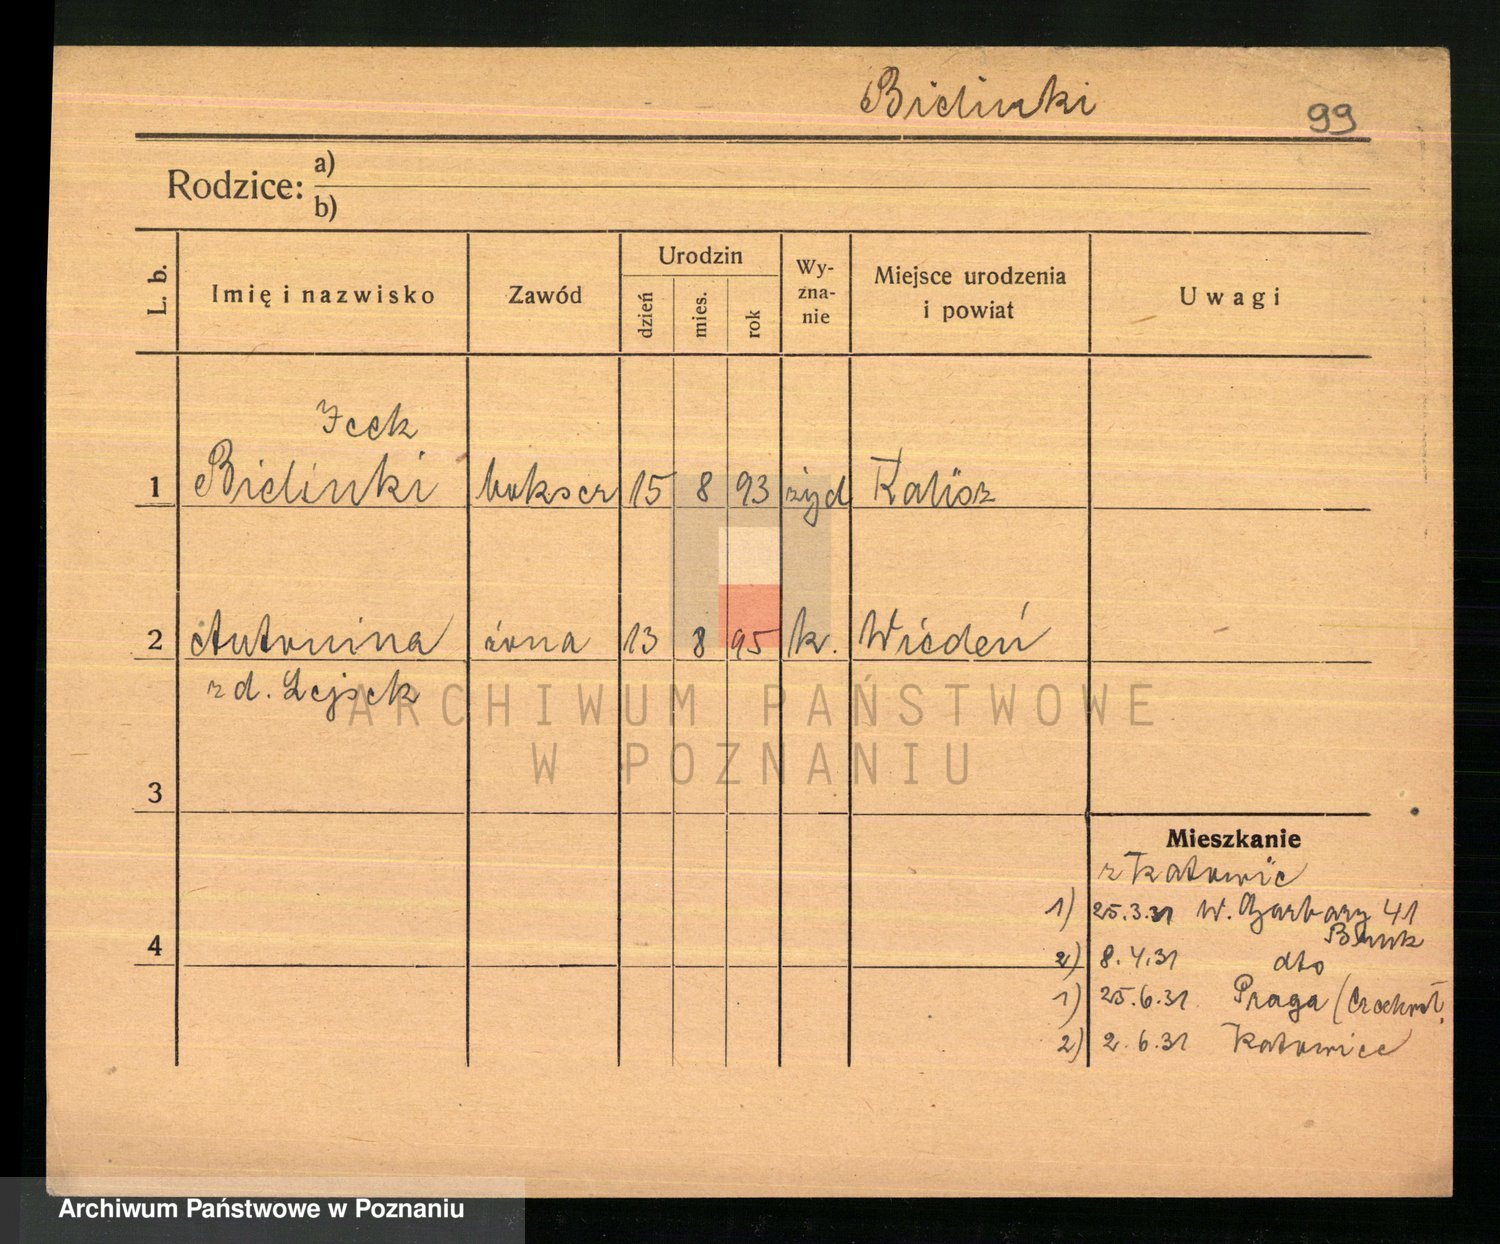 Bielinki 99
Rodzice: a)
b)
L. b. Imię i nazwisko Zawód Urodzin dzień mies. rok Wy-zna-nie Miejsce urodzenia i powiat Uwagi
Icek
1 Bielinki bokser 15 8 93 żyd Kalisz
2 Antonina żona 13 8 95 k. Wiedeń
zd. Lejsek
3
Mieszkanie
z Katowic
1) 25.3.31 W. Garbary 41
4
2) 8.4.31 dto
1) 25.6.31 Praga (Czechosł.
2) 2.6.31 Katowice
ARCHIWUM PAŃSTWOWE
W POZNANIU
Archiwum Państwowe w Poznaniu